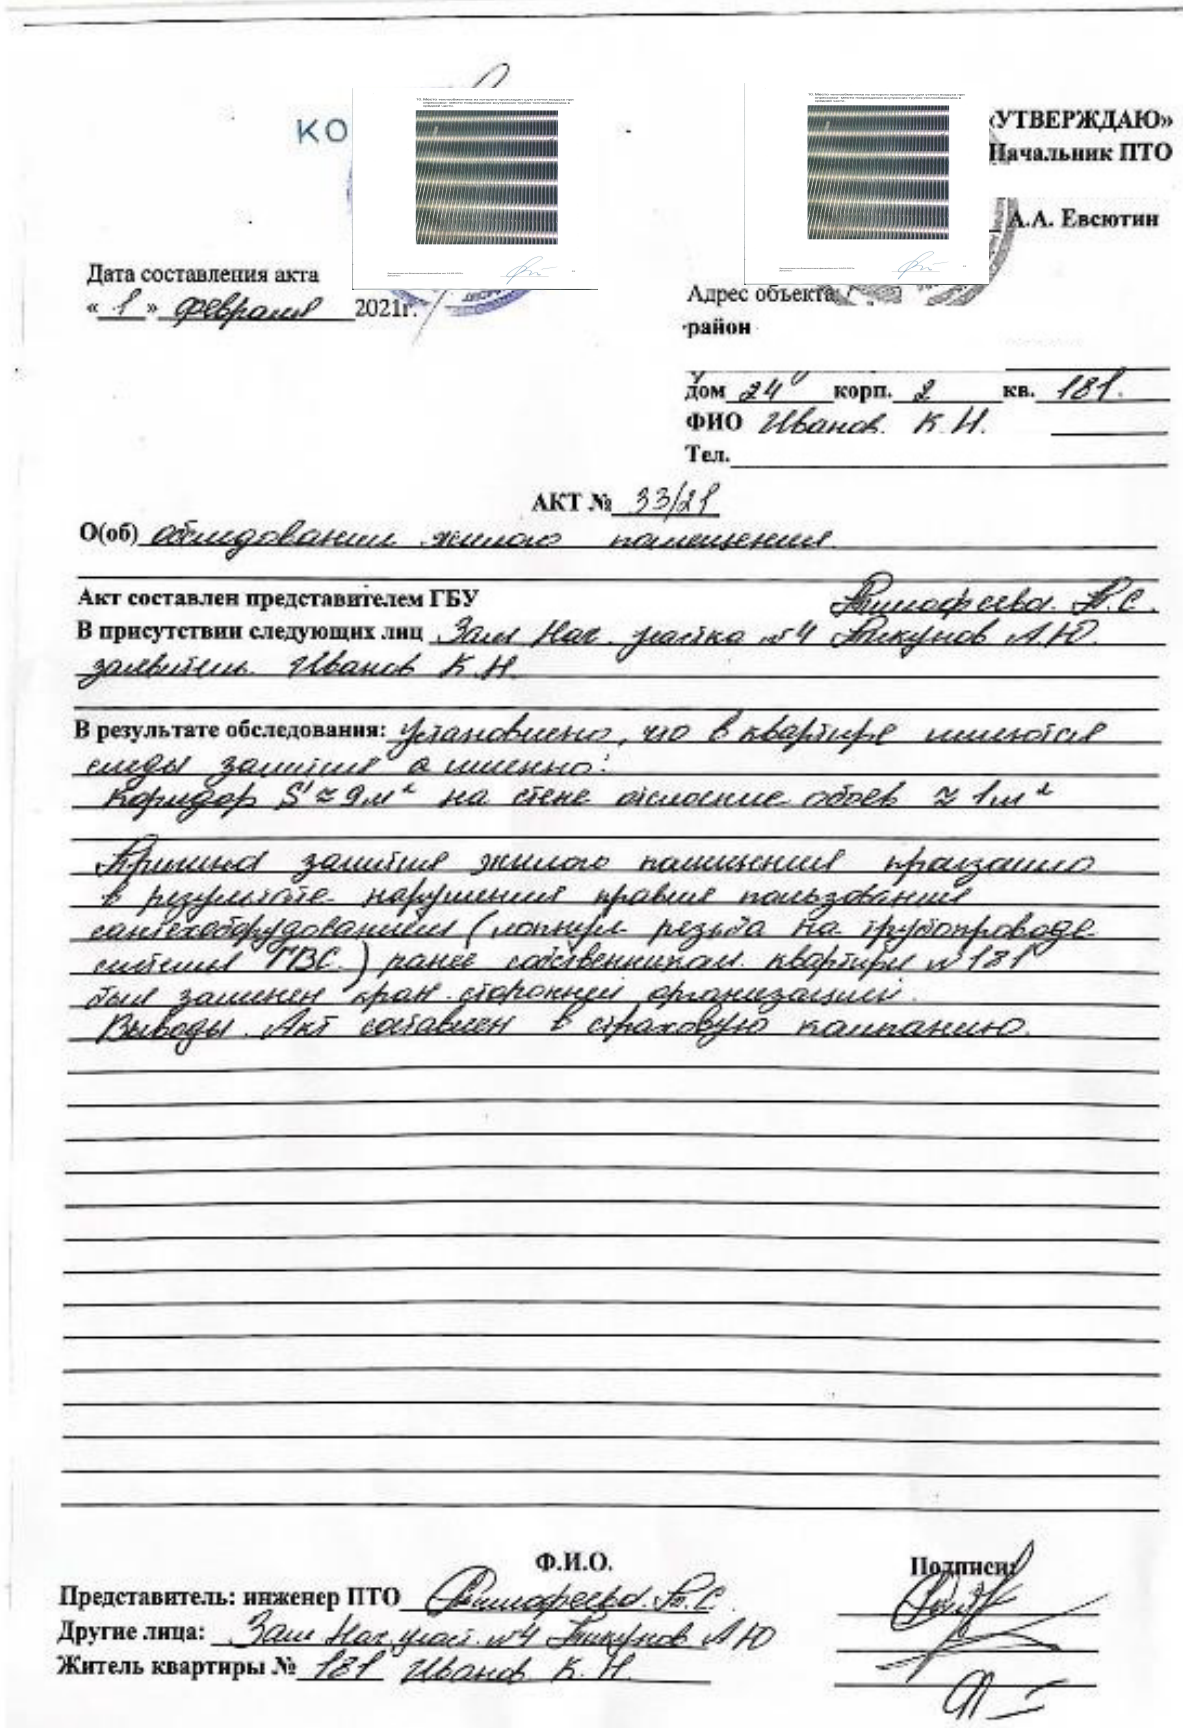 КО
«УТВЕРЖДАЮ»
Начальник ПТО
А.А. Евсютин
Дата составления акта
« 1 » февраля 2021г.
Адрес объекта:
район
дом 24 корп. 2 кв. 181.
ФИО Иванов. К.Н.
Тел.
АКТ № 33/21
О(об) обследовании жилого помещения.
Акт составлен представителем ГБУ Тимофеева. Т.С.
В присутствии следующих лиц Зам Нач. участка №4 Тикунов А.Ю.
заявитель. Иванов К.Н.
В результате обследования: установлено, что в квартире имеются
следы залития а именно:
Коридор S ≈ 9м² на стене отслоение обоев ≈ 1м²
Причина залития жилого помещения произошло
в результате нарушения правил пользования
сантехоборудованием (лопнула резьба на трубопроводе
системы ГВС.) ранее собственником. квартиры №181
был заменен кран сторонней организацией.
Выводы. Акт составлен в страховую компанию.
Ф.И.О. Подписи:
Представитель: инженер ПТО Тимофеева. Т.С.
Другие лица: Зам Нач. участ. №4 Тикунов А.Ю
Житель квартиры № 181 Иванов К.Н.